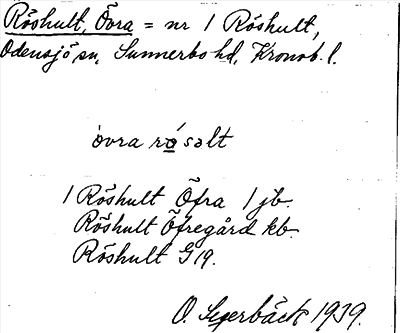 Röshult, Övra = nr 1 Röshult,
Odensjö sn, Sunnerbo hd, Kronob. l.
òvra ró̱səlt
1 Röshult Öfra 1 jb.
Röshult Öfregård kb.
Röshult G 19.
O. Segerbäck 1939.